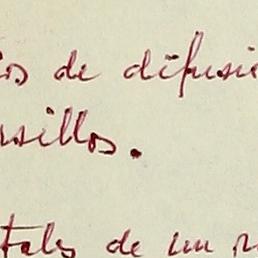 os de difusi
rsillos.
tales de un